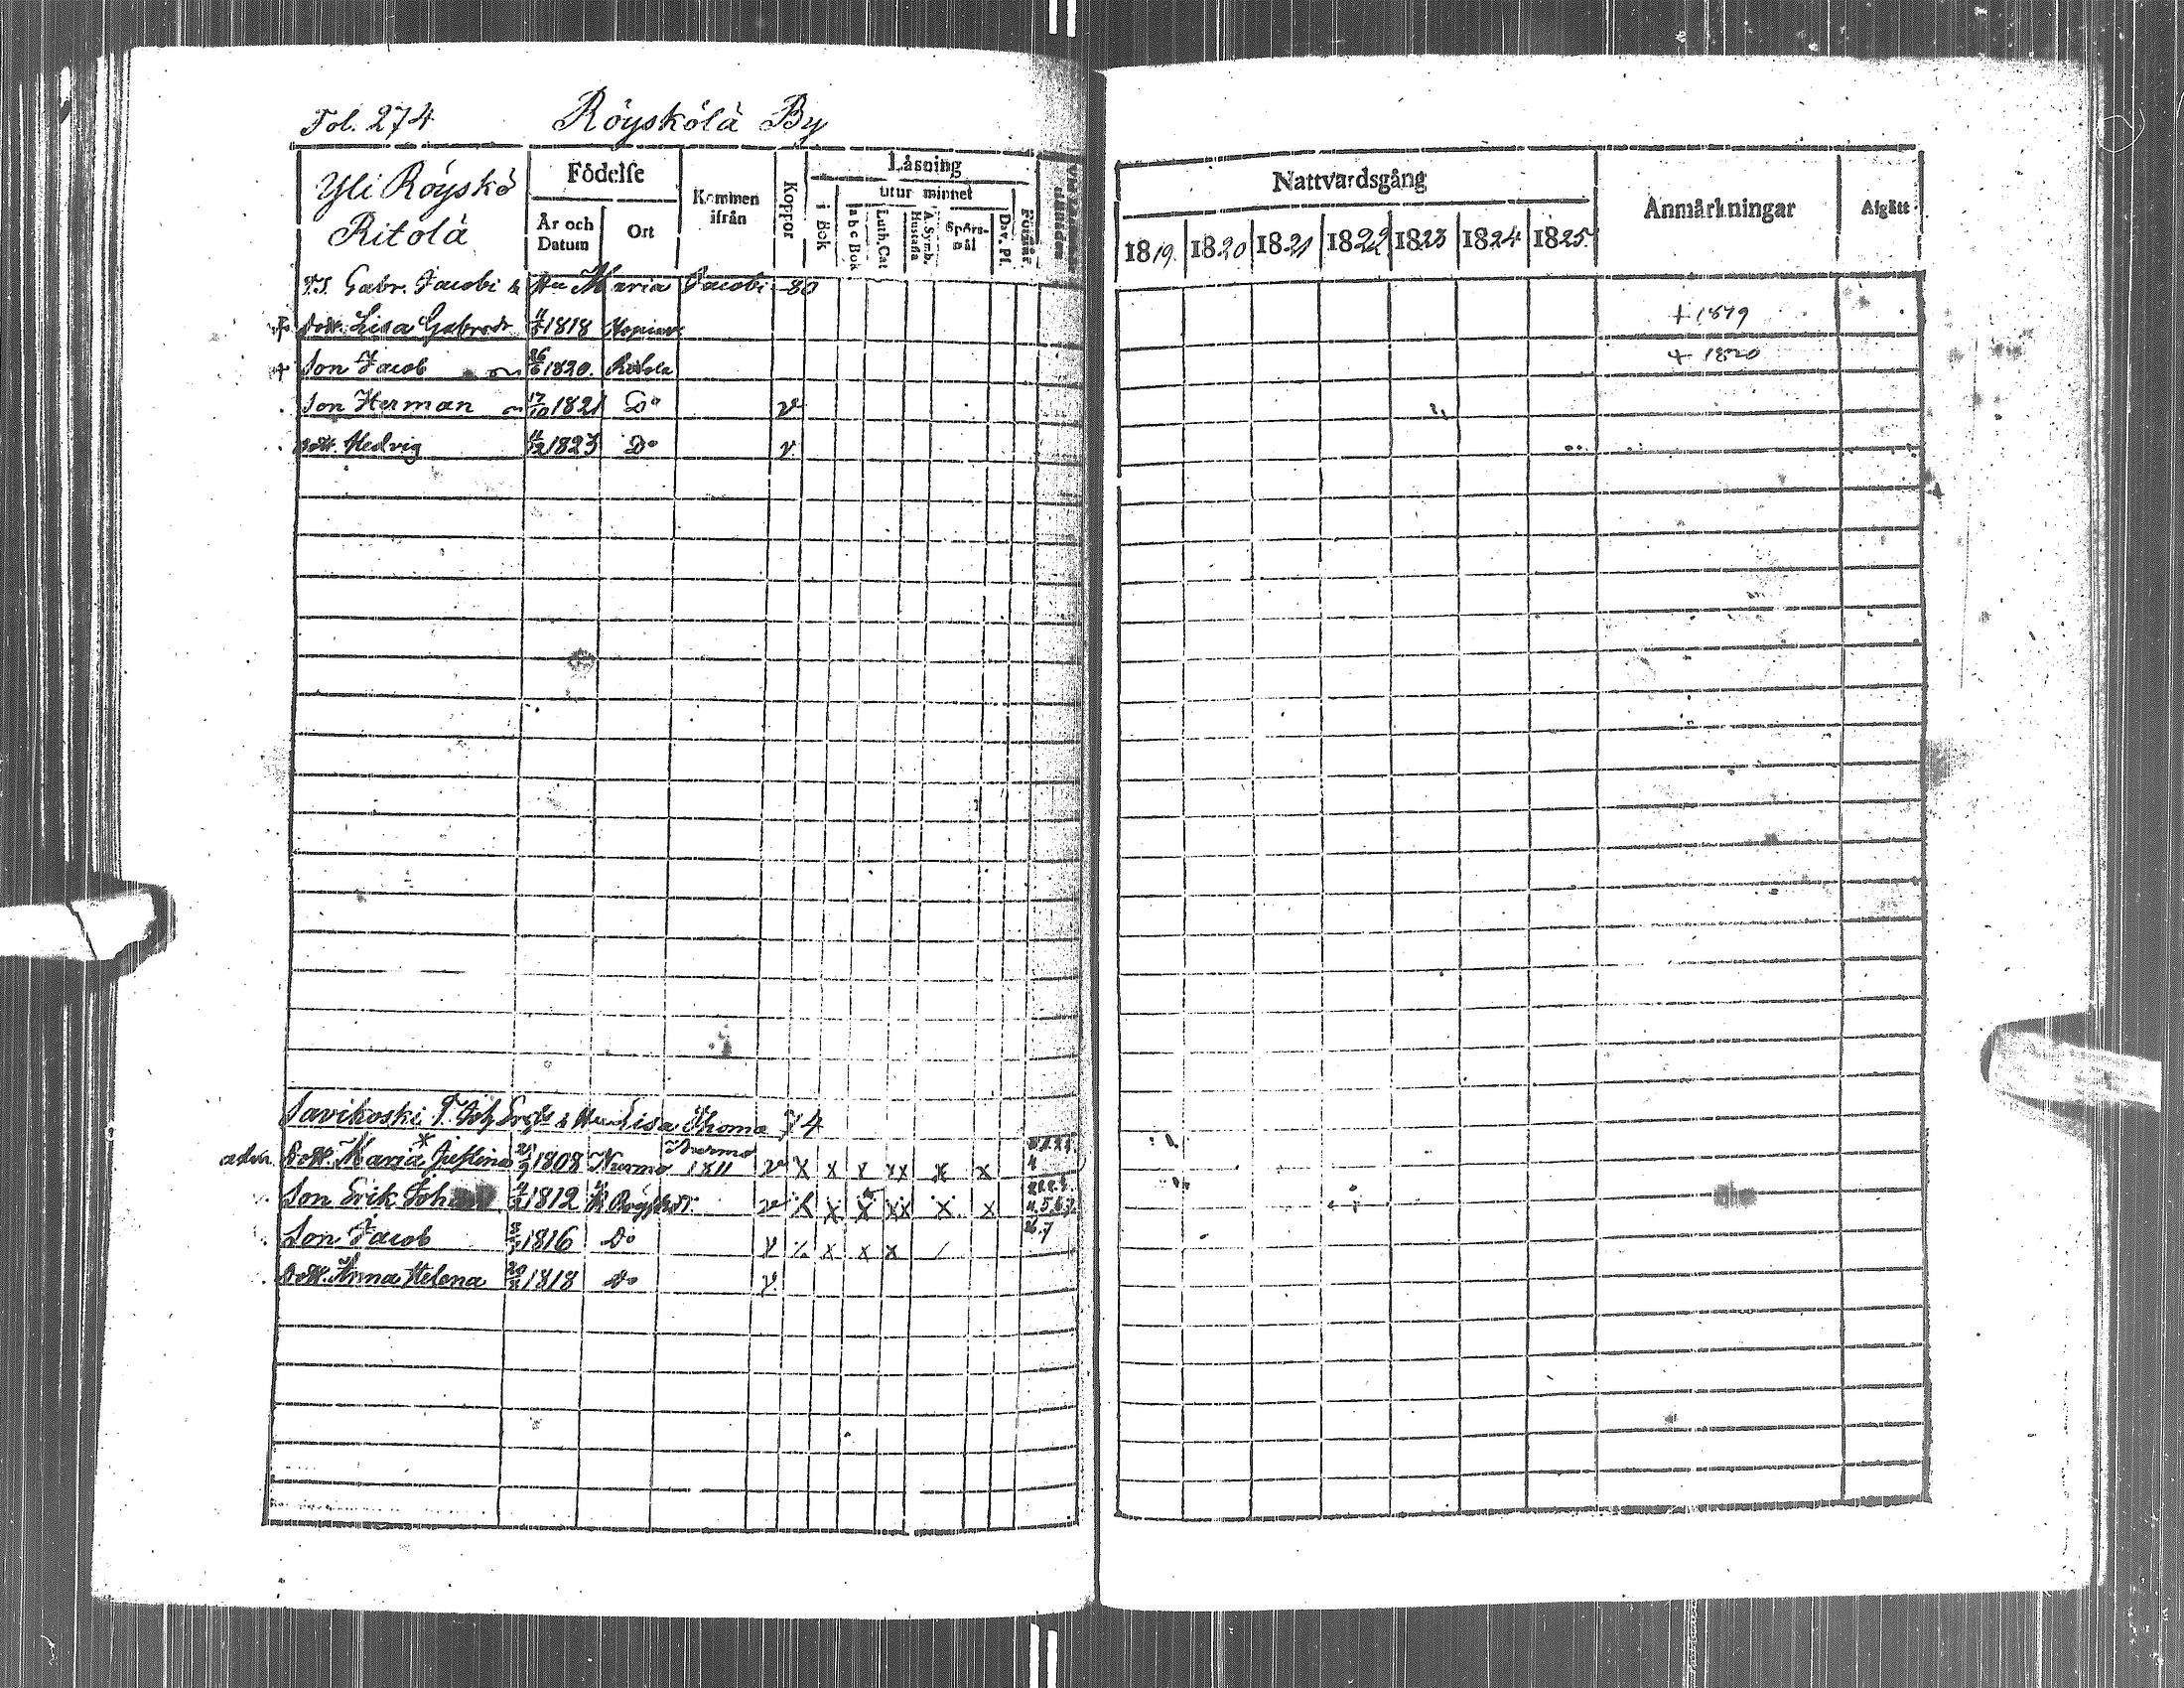 Fol. 274 Röyskölä By
Yli Röyskö
Ritolä
Födelse
År och Datum
Ort
Kommen ifrån
Koppor
Läsning
i Bok
utur minnet
a b c Bok
Luth. Cat
A. Symb. Hustafla
Spörsmål
Dav. Ps.
Förstår
T. Gabr. Jacobi & Hu Maria Jacobi -80
+ Dott. Lisa Gabrodr 1818
+ Son Jacob 26/6 1820. Ritola
Son Herman 17/10 1821 Do v
Dott. Hedvig 1823 Do v
Savikoski T. Joh Ersz & Hu Lisa Thoma 74
Dott. Maria Justina 1808 Nurmo Nurmo 1811 v x x x xx x x
Son Erik Joh 1812 v x x x xx x x
Son Jacob 1816 Do v x x x /
Dott. Anna Helena 1818 Do v
Nattvardsgång
1819. 1820 1821 1822 1823 1824 1825.
Anmärkningar
Afgått
+ 1819
+ 1820